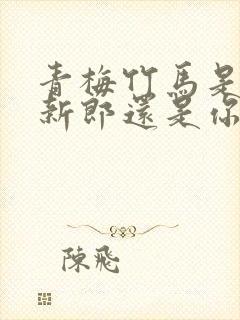 青梅竹馬是
新郎還是你
陳飛